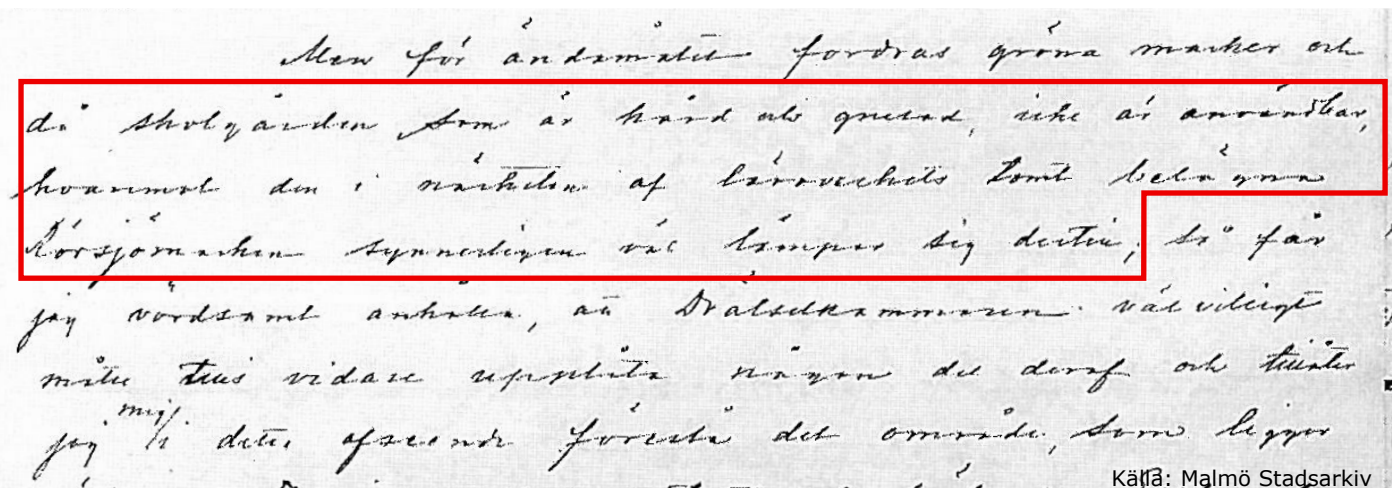 Men för ändamålet fordras gröna marker och
då skolgården, som är hård och grusad, icke är användbar,
hvaremot den i närheten af läroverkets tomt belägna
Rörsjömarken synnerligen väl lämpar sig dertill, så får
jag vördsamt anhålla, att Drätselkammaren välvilligt
måtte tills vidare upplåta någon del deraf och tillåter
jag mig i detta afseende föreslå det område, som ligger
Källa: Malmö Stadsarkiv